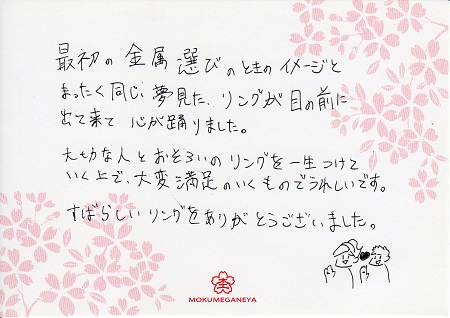 最初の金属選びのときのイメージと
まったく同じ、夢見た、リングが目の前に
出て来て 心が踊りました。
大切な人とおそろいのリングを一生つけて
いく上で、大変満足のいくものでうれしいです。
すばらしいリングをありがとうございました。
杢
MOKUMEGANEYA